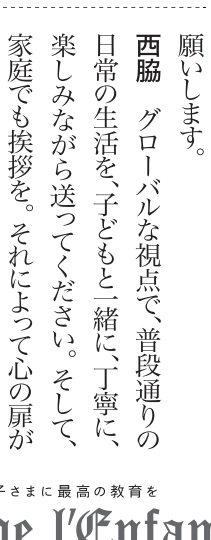 願いします。
西脇　グローバルな視点で、普段通りの
日常の生活を、子どもと一緒に、丁寧に、
楽しみながら送ってください。そして、
家庭でも挨拶を。それによって心の扉が
さまに最高の教育を
l'Enfan